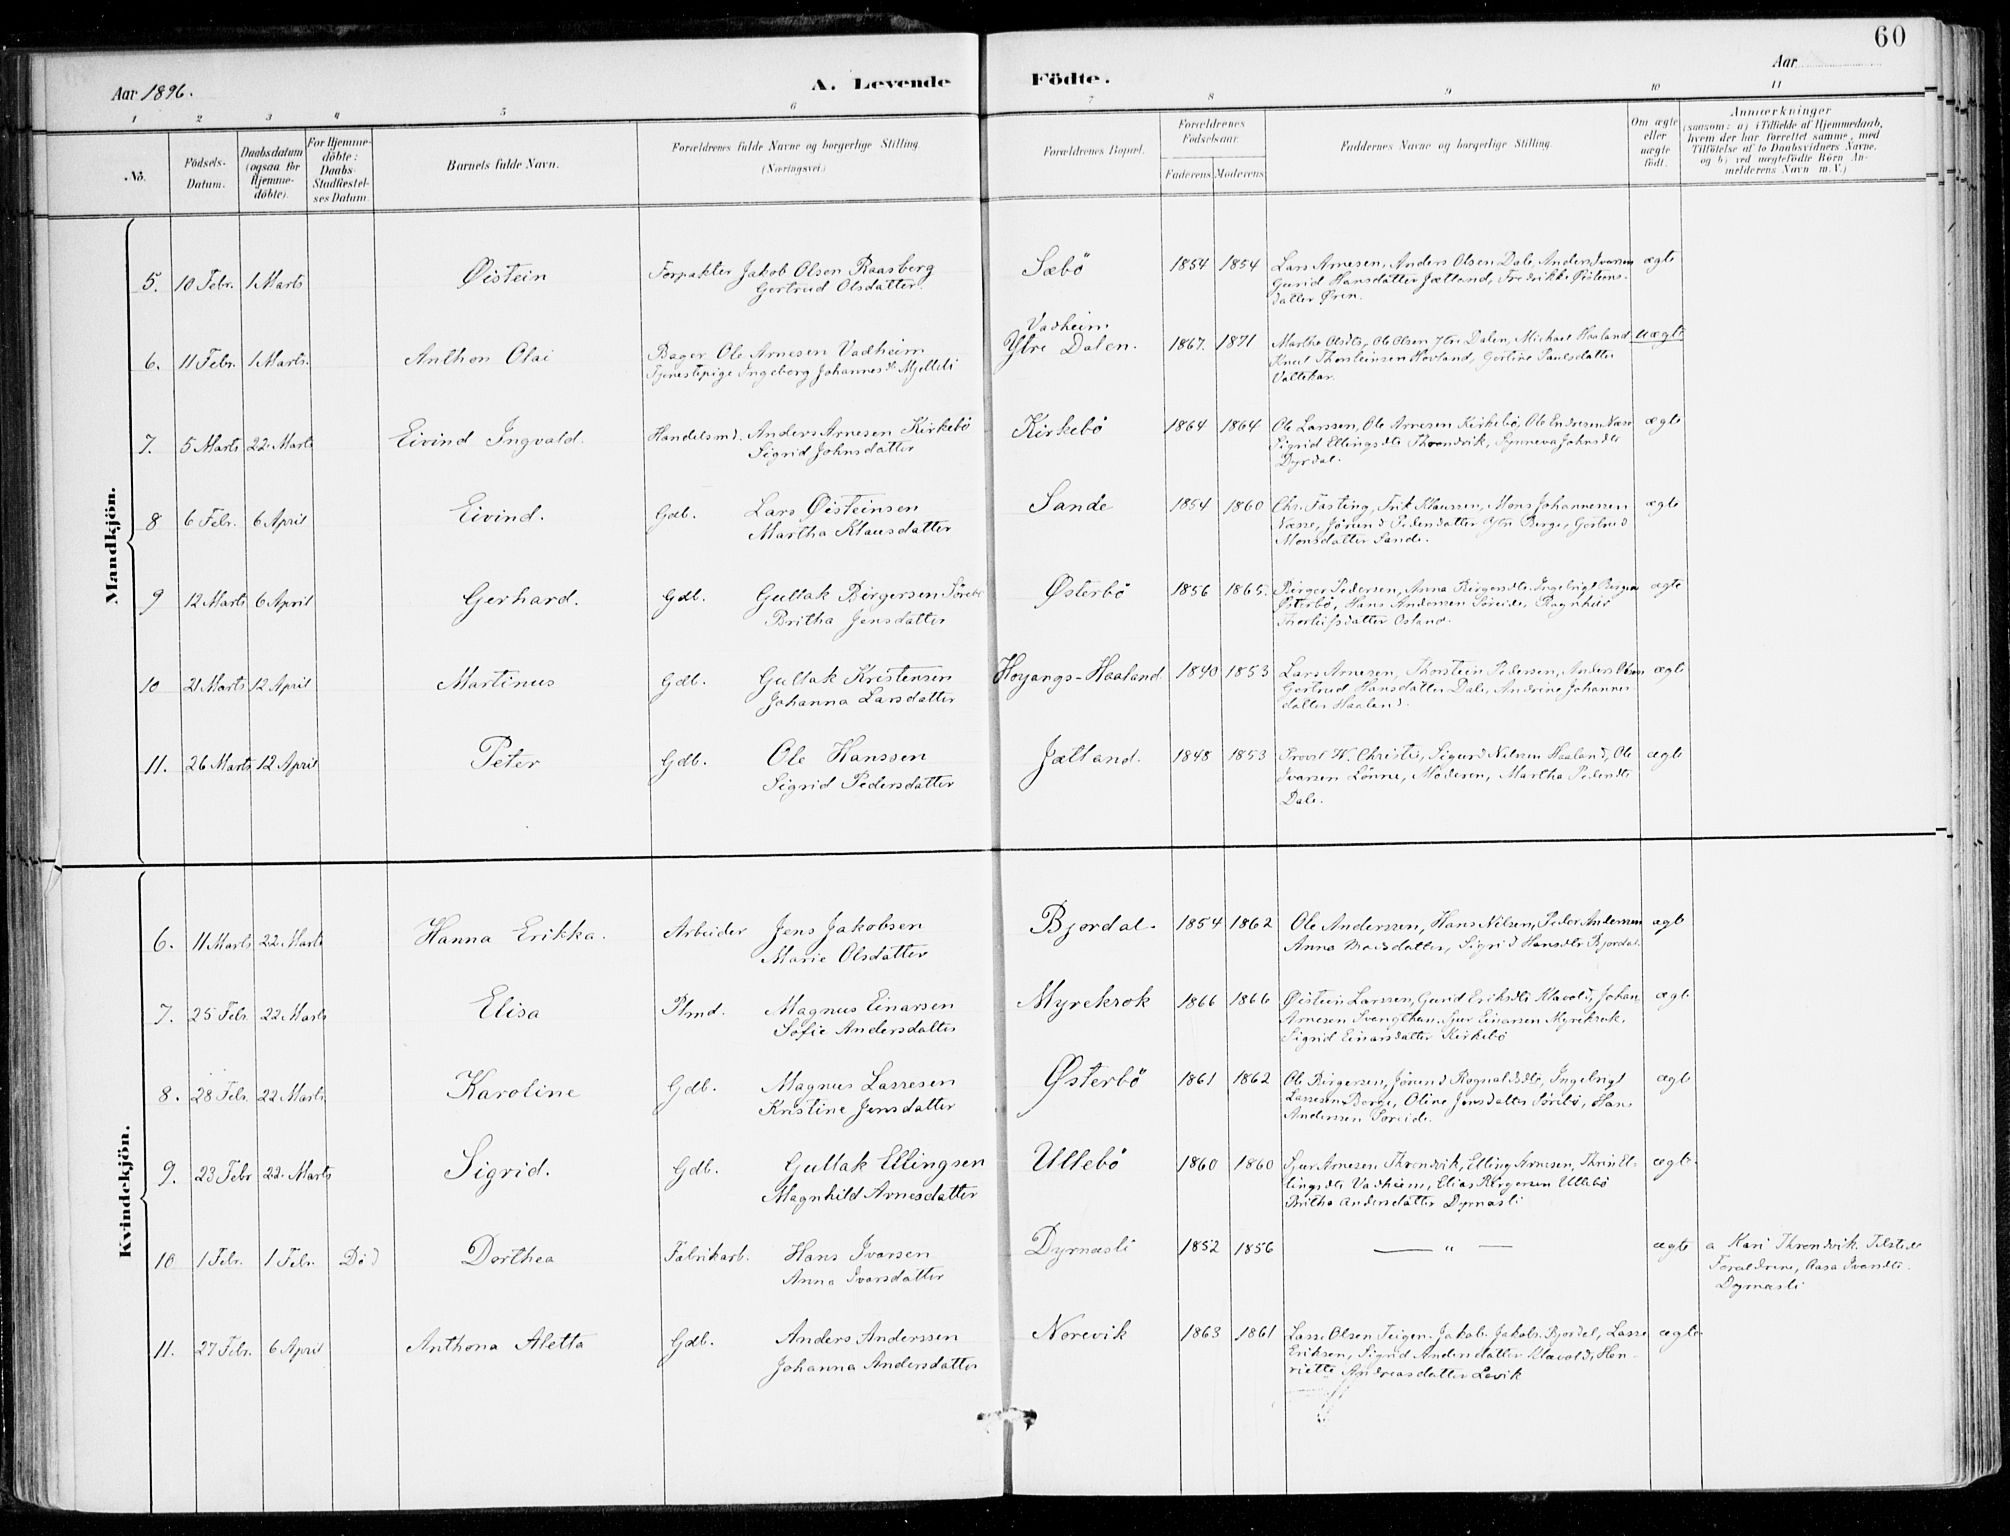 60
Aar 1896.
A. Levende
Födte.
Aar
1 2 3 4 5 6 7 8 9 10 11
No.
Födsels-
Datum.
Daabsdatum
(ogsaa for
Hjemme-
döbte).
For Hjemme-
döbte:
Daabs-
Stadfæstel-
ses Datum.
Barnets fulde Navn.
Forældrenes fulde Navne og borgerlige Stilling.
(Næringsvei.)
Forældrenes Bopæl.
Forældrenes
Födselsaar.
Faderens Moderens
Faddernes Navne og borgerlige Stilling.
Om ægte
eller
uægte
födt.
Anmærkninger
(saasom: a) i Tilfælde af Hjemmedaab,
hvem der har forrettet samme, med
Tilföielse af to Daabsvidners Navne,
og b) ved uægtefödte Börn An-
melderens Navn m. V.)
Mandkjön.
5. 10 Febr. 1 Marts Øistein Forpakter Jakob Olsen Raasberg Sæbö 1854 1854 Lars Arnesen, Anders Olsen Dale, Anders Ivarsen ægte
Gertrud Olsdatter. Gurid Hansdatter Jætland, Fredrikke Øistens-
datter Øren.
6. 11 Febr. 1 Marts. Anthon Olai Bager Ole Arnesen Vadheim Vadheim
Ytre Dalen. 1867. 1871 Marthe Olsdtr, Ole Olsen Ytre Dalen, Michael Haaland uægte
Tjenestepige Ingeborg Johannesdr Mjelleli Knut Thorsteinsen Hovland, Gortine Paulsdatter
7. 5 Marts 22 Marts Eivind Ingvald. Handelsmd. Anders Arnesen Kirkebö Kirkebö 1864 1864 Ole Larssen, Ole Arnesen Kirkebö, Ole Endresen Næse ægte
Sigrid Johnsdatter Sigrid Ellingsdtr Throndvik, Synneva Johnsdtr
Dyrdal.
8 6 Febr. 6 April Eivind. Gdb. Lars Øisteinsen Sande 1854 1860 Chr. Fasting, Erik Klaussen, Mons Johannessen ægte
Martha Klausdatter Næsse, Jörund Pedersdatter Ytre Berge, Gertrud
Monsdatter Sande.
9 12 Marts 6 April Gerhard. Gdb. Gullak Börgersen Sörebö Østerbö 1856 1865. Börger Pedersen, Anna Börgersdtr, Ingebrigt ægte
Britha Jensdatter Østerbö, Hans Andersen Söreide, Ragnhild
Thorleifsdatter Osland.
10 21 Marts 12 April Martinus Gdb. Gullak Kristensen Høyangs-Haaland 1840 1853 Lars Arnesen, Thorstein Pedersen, Anders Olsen ægte
Johanna Larsdatter Gertrud Hansdatter Dale, Andrine Johannes-
datter Haaland.
11. 26 Marts 12 April Peter Gdb. Ole Hanssen Jætland. 1848 1853 Provst W. Christie, Sigurd Nilssen Haaland, Ole ægte
Sigrid Pedersdatter Ivarsen Lönne, Moderen, Martha Pedersdtr
Dale.
Kvindekjön.
6. 11 Marts 22 Marts Hanna Erikka. Arbeider Jens Jakobsen Bjordal. 1854 1862 Ole Anderssen, Hans Nilsen, Peder Andersen ægte
Marie Olsdatter Anna Madsdatter, Sigrid Hansdtr Bjordal.
7. 25 Febr. 22 Marts Elisa Plmd. Magnus Einarsen Myrekrok 1866 1866 Øistein Larssen, Gurid Eriksdtr Klavold, Johan ægte
Sofie Andersdatter Arnesen Svengthun, Sjur Einarsen Myrekrok,
Sigrid Einarsdatter Kirkebö
8. 28 Febr. 22 Marts. Karoline Gdb. Magnus Lassesen Østerbö 1861 1862 Ole Börgersen, Jörund Ragnaldsdtr, Ingebrigt ægte
Kristine Jensdatter Lassesen Berge, Oline Jensdatter Sörebö, Hans
Andersen Søreide.
9. 23 Febr 22. Marts Sigrid. Gdb. Gullak Ellingsen Ullebö 1860 1860 Sjur Arnesen Throndvik, Elling Arnesen, Thrin El- ægte
Magnhild Arnesdatter lingsdtr Vadheim, Elias Börgersen Ullebö
Britha Andersdatter Dyrnæsli
10 1 Febr. 1 Febr. Död Dorthea Fabrikarb. Hans Ivarsen Dyrnæsli 1852 1856 — " — ægte a Kari Throndvik. Tilstede
Anna Ivarsdatter Foraldrene, Aasa Ivarsdtr.
Dyrnæsli
11. 27 Febr. 6 April Anthona Aletta Gdb. Anders Anderssen Norevik 1863 1861 Lasse Olsen Teigen, Jakob Jakobs. Bjordal, Lasse ægte
Johanna Andersdatter Eriksen, Sigrid Andersdatter Klavold, Hen-
riette Andreasdatter Lervik